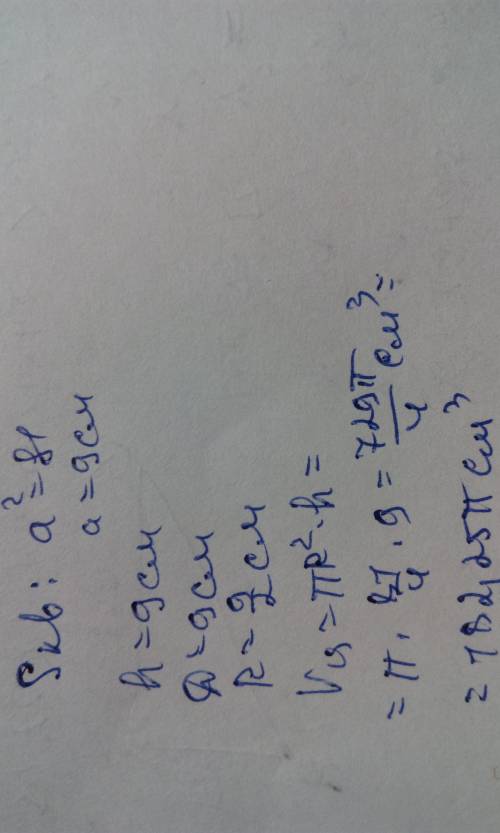 Sкв: a²=81
a=9см
h=9см
D=9см
R=9/2 см
Vц=πR²·h=
=π·81/4·9=729π/4 см³=
=182,25π см³